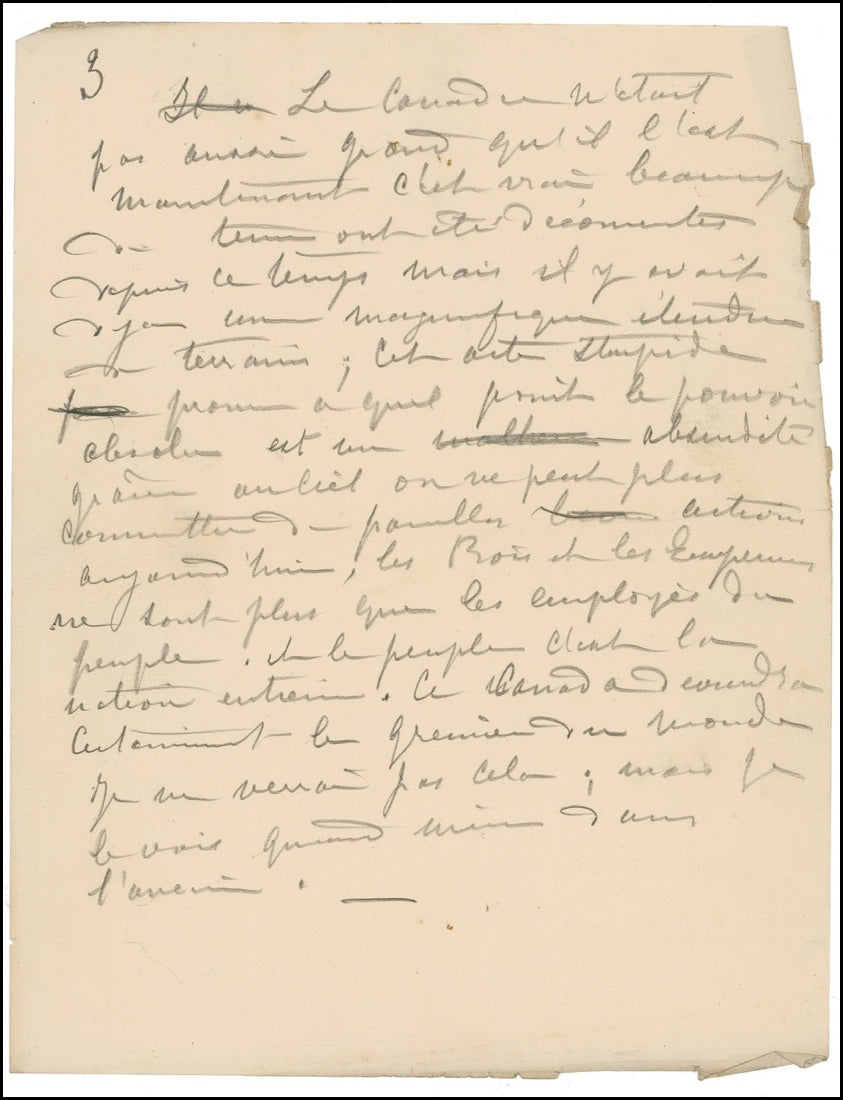 3
Le Canada n'était
pas aussi grand qu'il l'est
maintenant c'est vrai beaucoup
de terres ont été découvertes
depuis ce temps mais il y avait
déja une magnifique étendue
de terrains ; Cet acte stupide
prouve à quel point le pouvoir
absolu est une absurdité
grâce au ciel on ne peut plus
commettre de pareilles actions
aujourd'hui, les Rois et les Empereurs
ne sont plus que les employés du
peuple. et le peuple c'est la
nation entière. Ce Canada deviendra
certainement le grenier du monde
je ne verrai pas cela ; mais je
le vois quand même dans
l'avenir. —